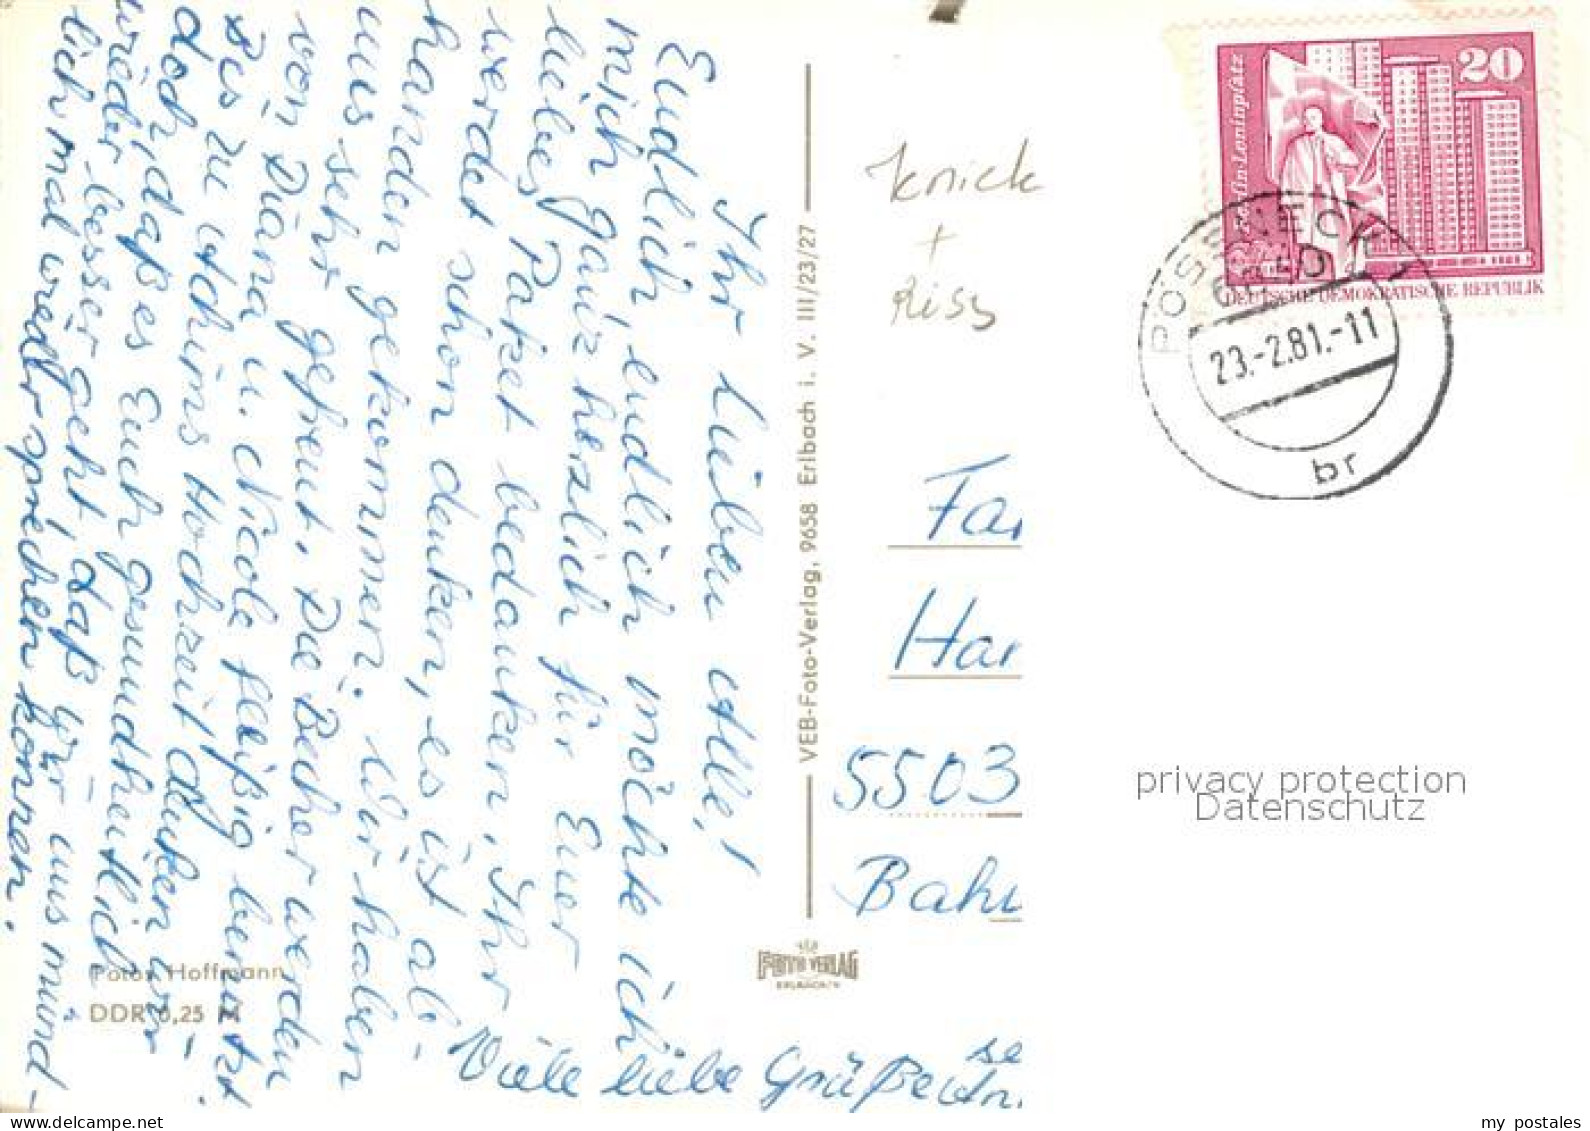 Ihr Lieben Alle!
Endlich endlich möchte ich
mich ganz herzlich für Euer
liebes Paket bedanken. Ihr
werdet schon denken, es ist ab-
handen gekommen. Wir haben
uns sehr gefreut. Die Becher werden
von Diana u. Nicole fleißig benutzt
Bis zu Achims Hochzeit denken wir
doch, daß es Euch gesundheitlich
wieder besser geht, daß wir uns münd-
lich mal wieder sprechen können.
Viele liebe Grüße
Foto: Hoffmann
DDR 0,25 M
VEB-Foto-Verlag, 9658 Erlbach i. V. III/23/27
FOTO VERLAG
ERLBACH/V
Knick
+
Riss
20
Berlin-Leninplatz
DEUTSCHE DEMOKRATISCHE REPUBLIK
PÖSSNECK 1
6840
23.-2.81.-11
br
Fa
Har
5503
Bah
privacy protection
Datenschutz
my postales